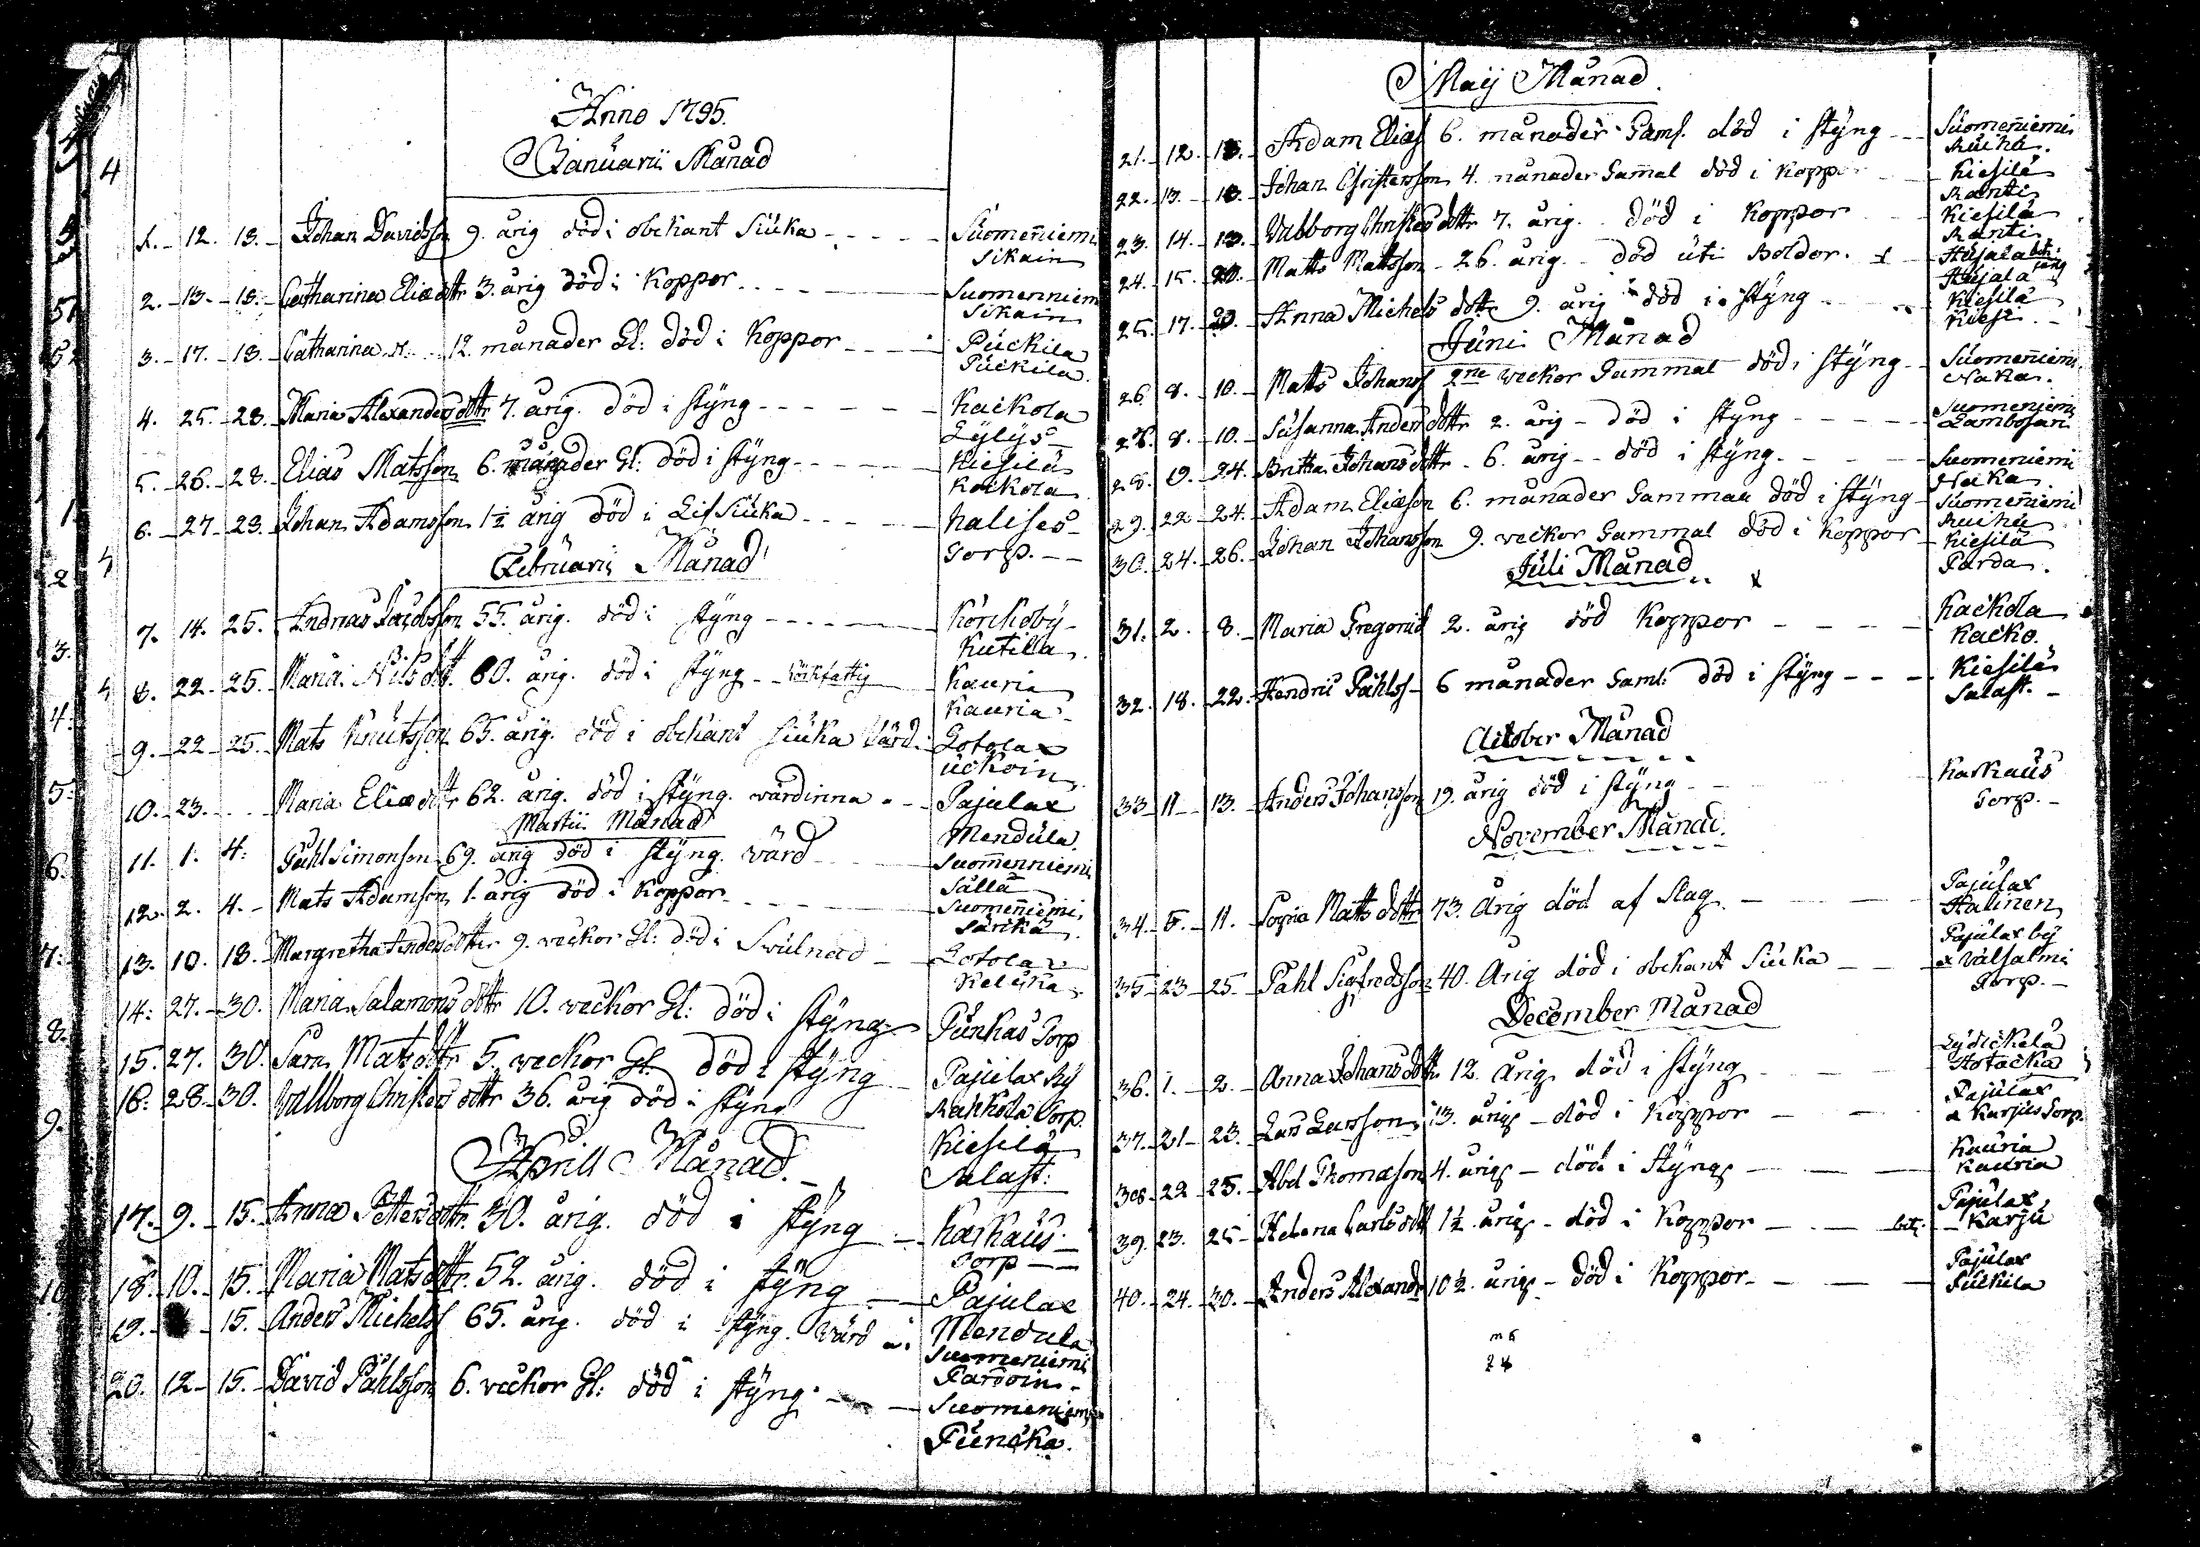 Anno 1795.
Januarii Månad
1. 12. 18. Johan Davidsson 9. årig död i obekant Siuka Suomeñiemi
Sikain
2. 13. 18. Catharina Eliædttr 3. årig död i Koppor Suomenniemi
Sikain
3. 17. 18. Catharina 12 månader Gl: död i Koppor Puckila
Puckila
4. 25. 28. Maria Alexandersdttr 7. årig död i styng Kackola
Lylys
5. 26. 28. Elias Matsson 6. månader Gl: död i styng Kiesilä
Kockola
6. 27. 28. Johan Adamsson 1½ årig död i Lifsiuka
Torp.
Februarii Månad
7. 14. 25. Andreas Jacobsson 55. årig. död i styng
Kutilla
8. 22. 25. Maria Nilsdttr. 60. årig. död i styng Kauria
Kauria
9. 22. 25. Mats Knutsson 65. årig. död i obekant siuka Värd. Gotolax
Uckoin
10. 23. Maria Eliædttr 62. årig. död i styng. värdinna Pajulax
Mendula
Martii Månad
11. 1. 4. Påhl Simonson 69. årig död i styng. värd Suomenniemi
Sallä
12. 2. 4. Mats Adamson 1. årig död i Koppor Suomeñiemi
Särkä
13. 10. 18. Margretha Andersdotter 9. veckor Gl: död i Swulnad Gotolax
14. 27. 30. Maria Salamonsdttr 10. veckor Gl: död i styng Punkas Torp
15. 27. 30. Sara Matsdttr 5. veckor Gl. död i styng Pajulax By
Rackola Torp.
16. 28. 30. Vallborg Christersdttr 36. årig död i styng Kiesilä
Salast:
Aprill Månad.
17. 9. 15. Anna Pettersdttr. 30. årig. död i styng Karkaus
Torp
18. 10. 15. Maria Matsdttr. 52. årig. död i styng Pajulax
Mendula
19. 15. Anders Michelss 65. årig. död i styng. Värd Suomeniemi
Pardoin
20. 12. 15. David Påhlsson 6. veckor Gl: död i styng. Suomeniemi
Puencka.
Maij Månad.
21. 12. 18. Adam Eliæs 6. månader Gaml. död i styng Suomeñiemi
Rucha.
22. 13. 18. Johan Christersson 4. månader Gam̄al död i Koppor Kiesilä
Ranti
23. 14. 18. Valborg Christersdttr 7. årig. död i Koppor Kiesilä
Ranti
24. 15. 20. Matts Mattsson 26. årig. död uti Boldor.
25. 17. 20. Anna Michelsdttr 9. årig död i styng Kiesilä
Kiesi
Juni Månad
26. 8. 10. Matts Johanss 2ne veckor Gammal död i styng Suomeñiemi
Naka.
27. 8. 10. Susanna Andersdttr 2. årig död i styng Suomeniemi
Lambosari
28. 19. 24. Britta Johansdttr 6. årig död i styng. Suomeniemi
Naka
29. 22 24. Adam Eliæson 6. månader Gammal död i styng Suomeñiemi
Rucha
30. 24. 26. Johan Johansson 9. veckor Gammal död i Koppor Kiesilä
Parda.
Juli Månad
31. 2. 8. Maria Gregorid 2. årig död Koppor Kackola
Kacko.
32. 18. 22. Hendric Påhlss 6 månader Saml: död i styng Kiesilä
Salast.
October Månad
33 11 13. Anders Johansson 19. årig död i styng Karkaus
Torp.
November Månad.
34. 5. 11. Sophia Mattsdttr 73. Årig död af Slag. Pajulax
Halinen
35 23 25 Påhl Sigfredsson 40. Årig död i obekant Siuka Pajulax by
Valsalmi
Torp.
December Månad
36. 1. 2. Anna Johansdttr 12. Årig död i styng Lydickelä
Hotacka
37. 21 23. Lars Larsson 13. årig död i Koppor Pajulax
Karjus Torp.
38. 22 25. Abel Thomason 4. årig död i styng Kauria
Kauria
39. 23. 25 Helena Carlsdttr 1½ årig död i Koppor Pajulax
Karju
40. 24. 30. Anders Alexandr 10½. årig död i Koppor Pajulax
Puckila
m 6